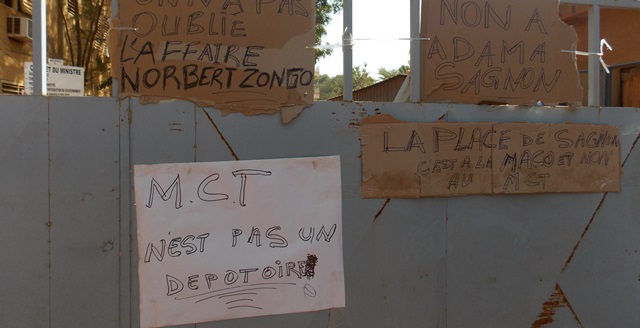 ON N'A PAS
OUBLIE
L'AFFAIRE
NORBERT ZONGO
NON A
ADAMA
SAGNON
ET DU MINISTRE
LA PLACE DE SAGNON
C'EST A LA MACO ET NON
AU MCT
M.C.T
N'EST PAS UN
DEPOTOIRE